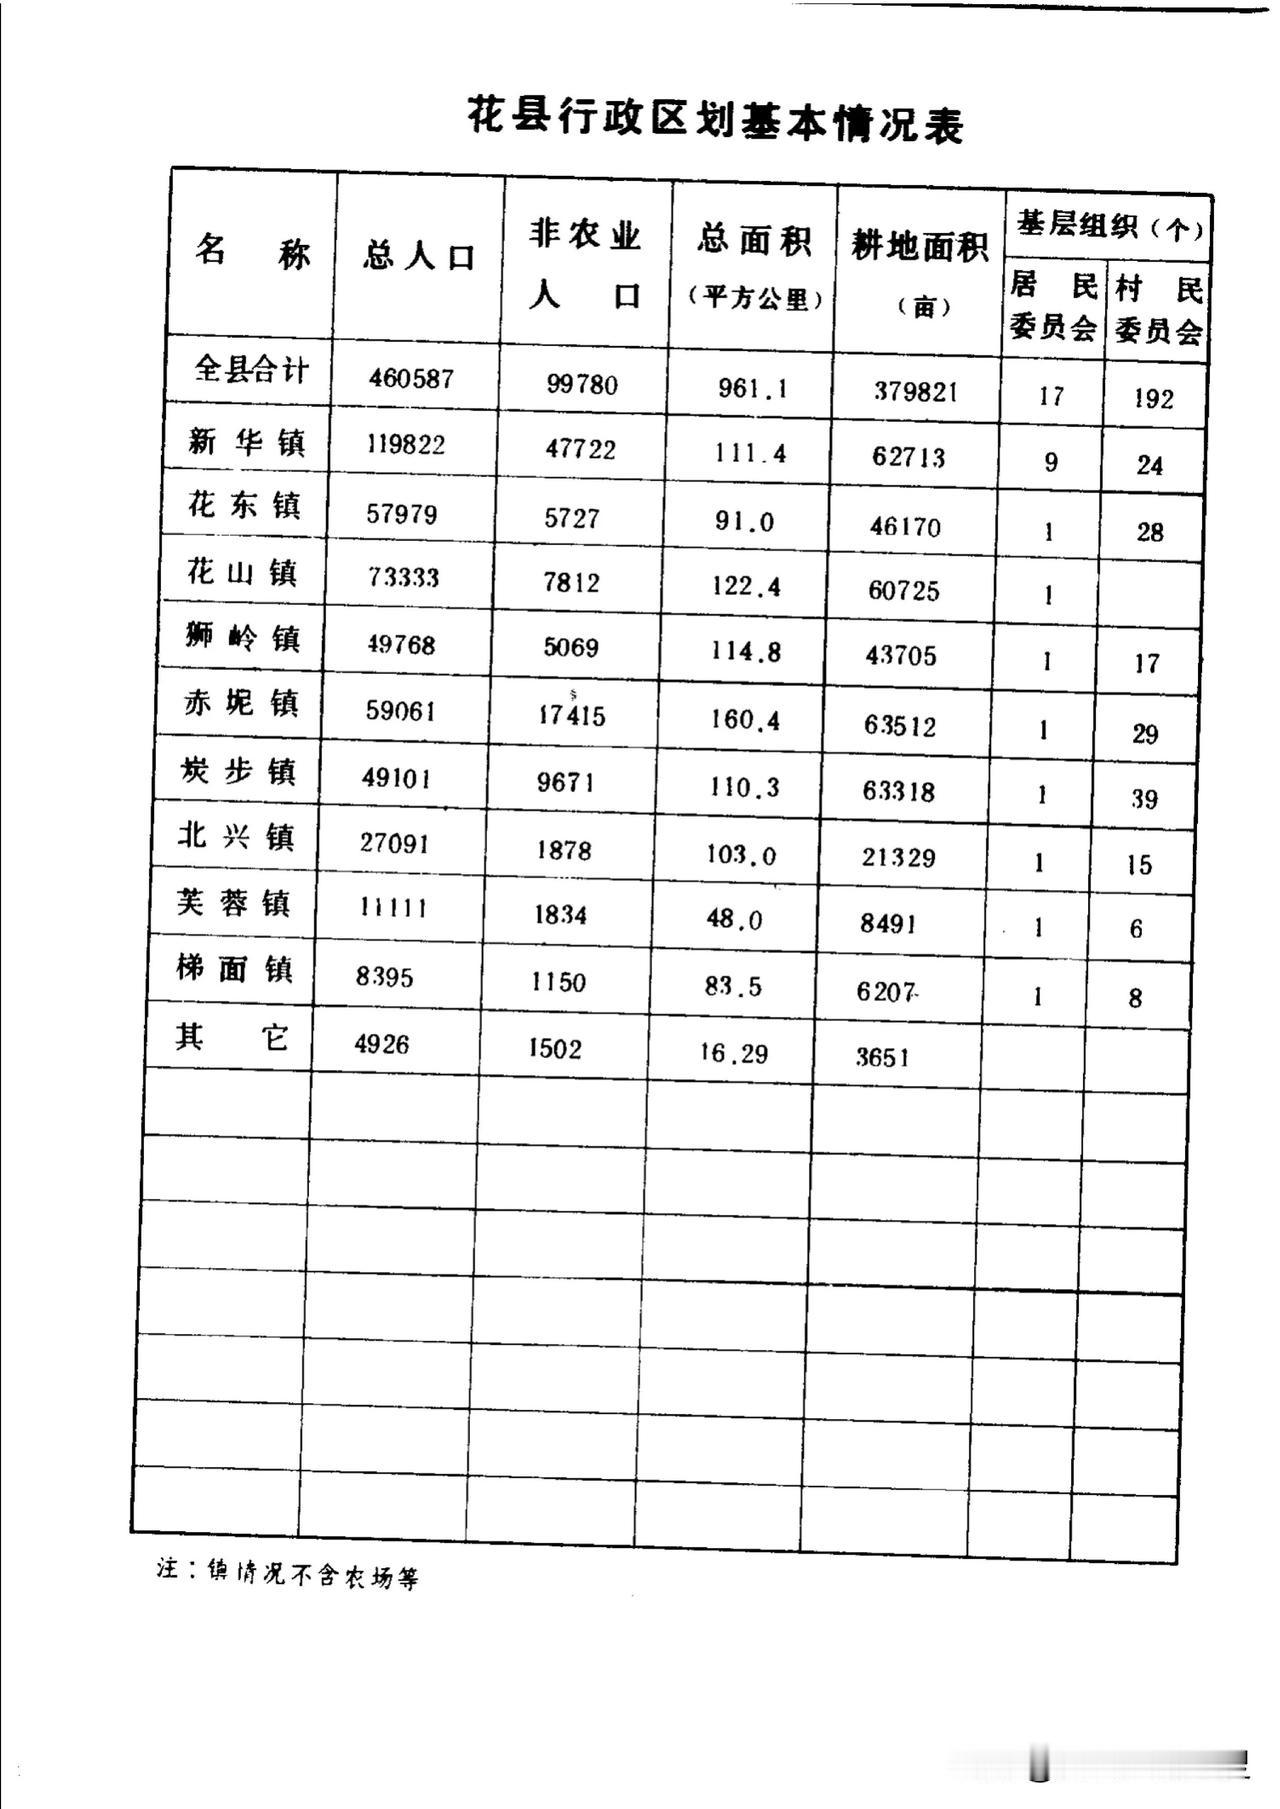 花县行政区划基本情况表
名称 总人口 非农业人口 总面积（平方公里） 耕地面积（亩） 基层组织（个）
居民委员会 村民委员会
全县合计 460587 99780 961.1 379821 17 192
新华镇 119822 47722 111.4 62713 9 24
花东镇 57979 5727 91.0 46170 1 28
花山镇 73333 7812 122.4 60725 1
狮岭镇 49768 5069 114.8 43705 1 17
赤坭镇 59061 17415 160.4 63512 1 29
炭步镇 49101 9671 110.3 63318 1 39
北兴镇 27091 1878 103.0 21329 1 15
芙蓉镇 11111 1834 48.0 8491 1 6
梯面镇 8395 1150 83.5 6207 1 8
其它 4926 1502 16.29 3651
注：镇情况不含农场等